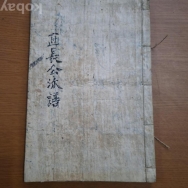 kobay
直長公派譜